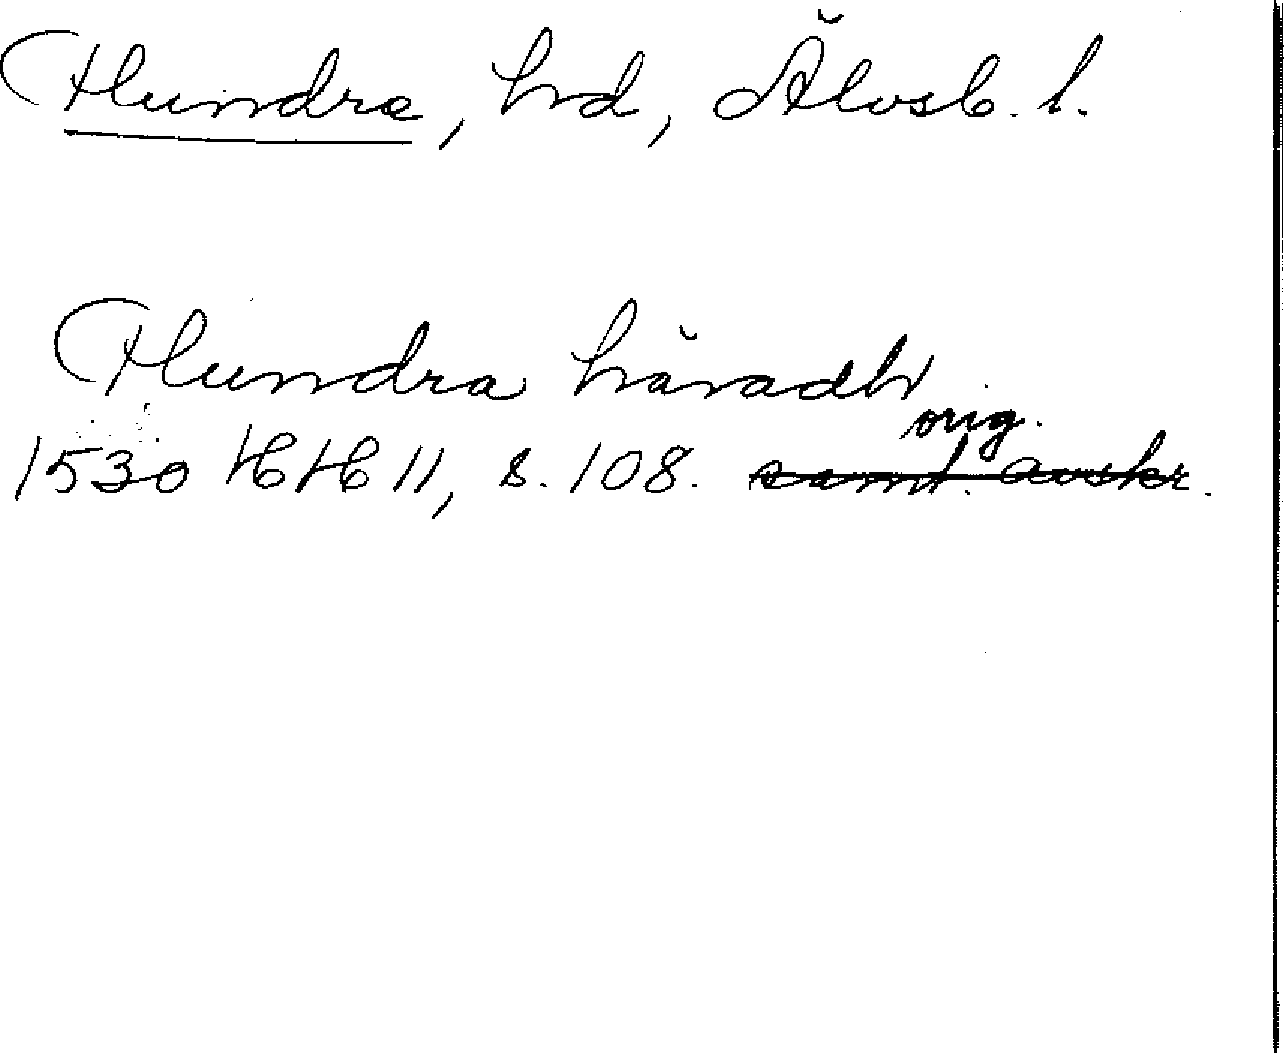 Hundra, hd, Älvsb. l.
Hundra häradh
orig.
1530 HH 11, s. 108. samt. avskr.